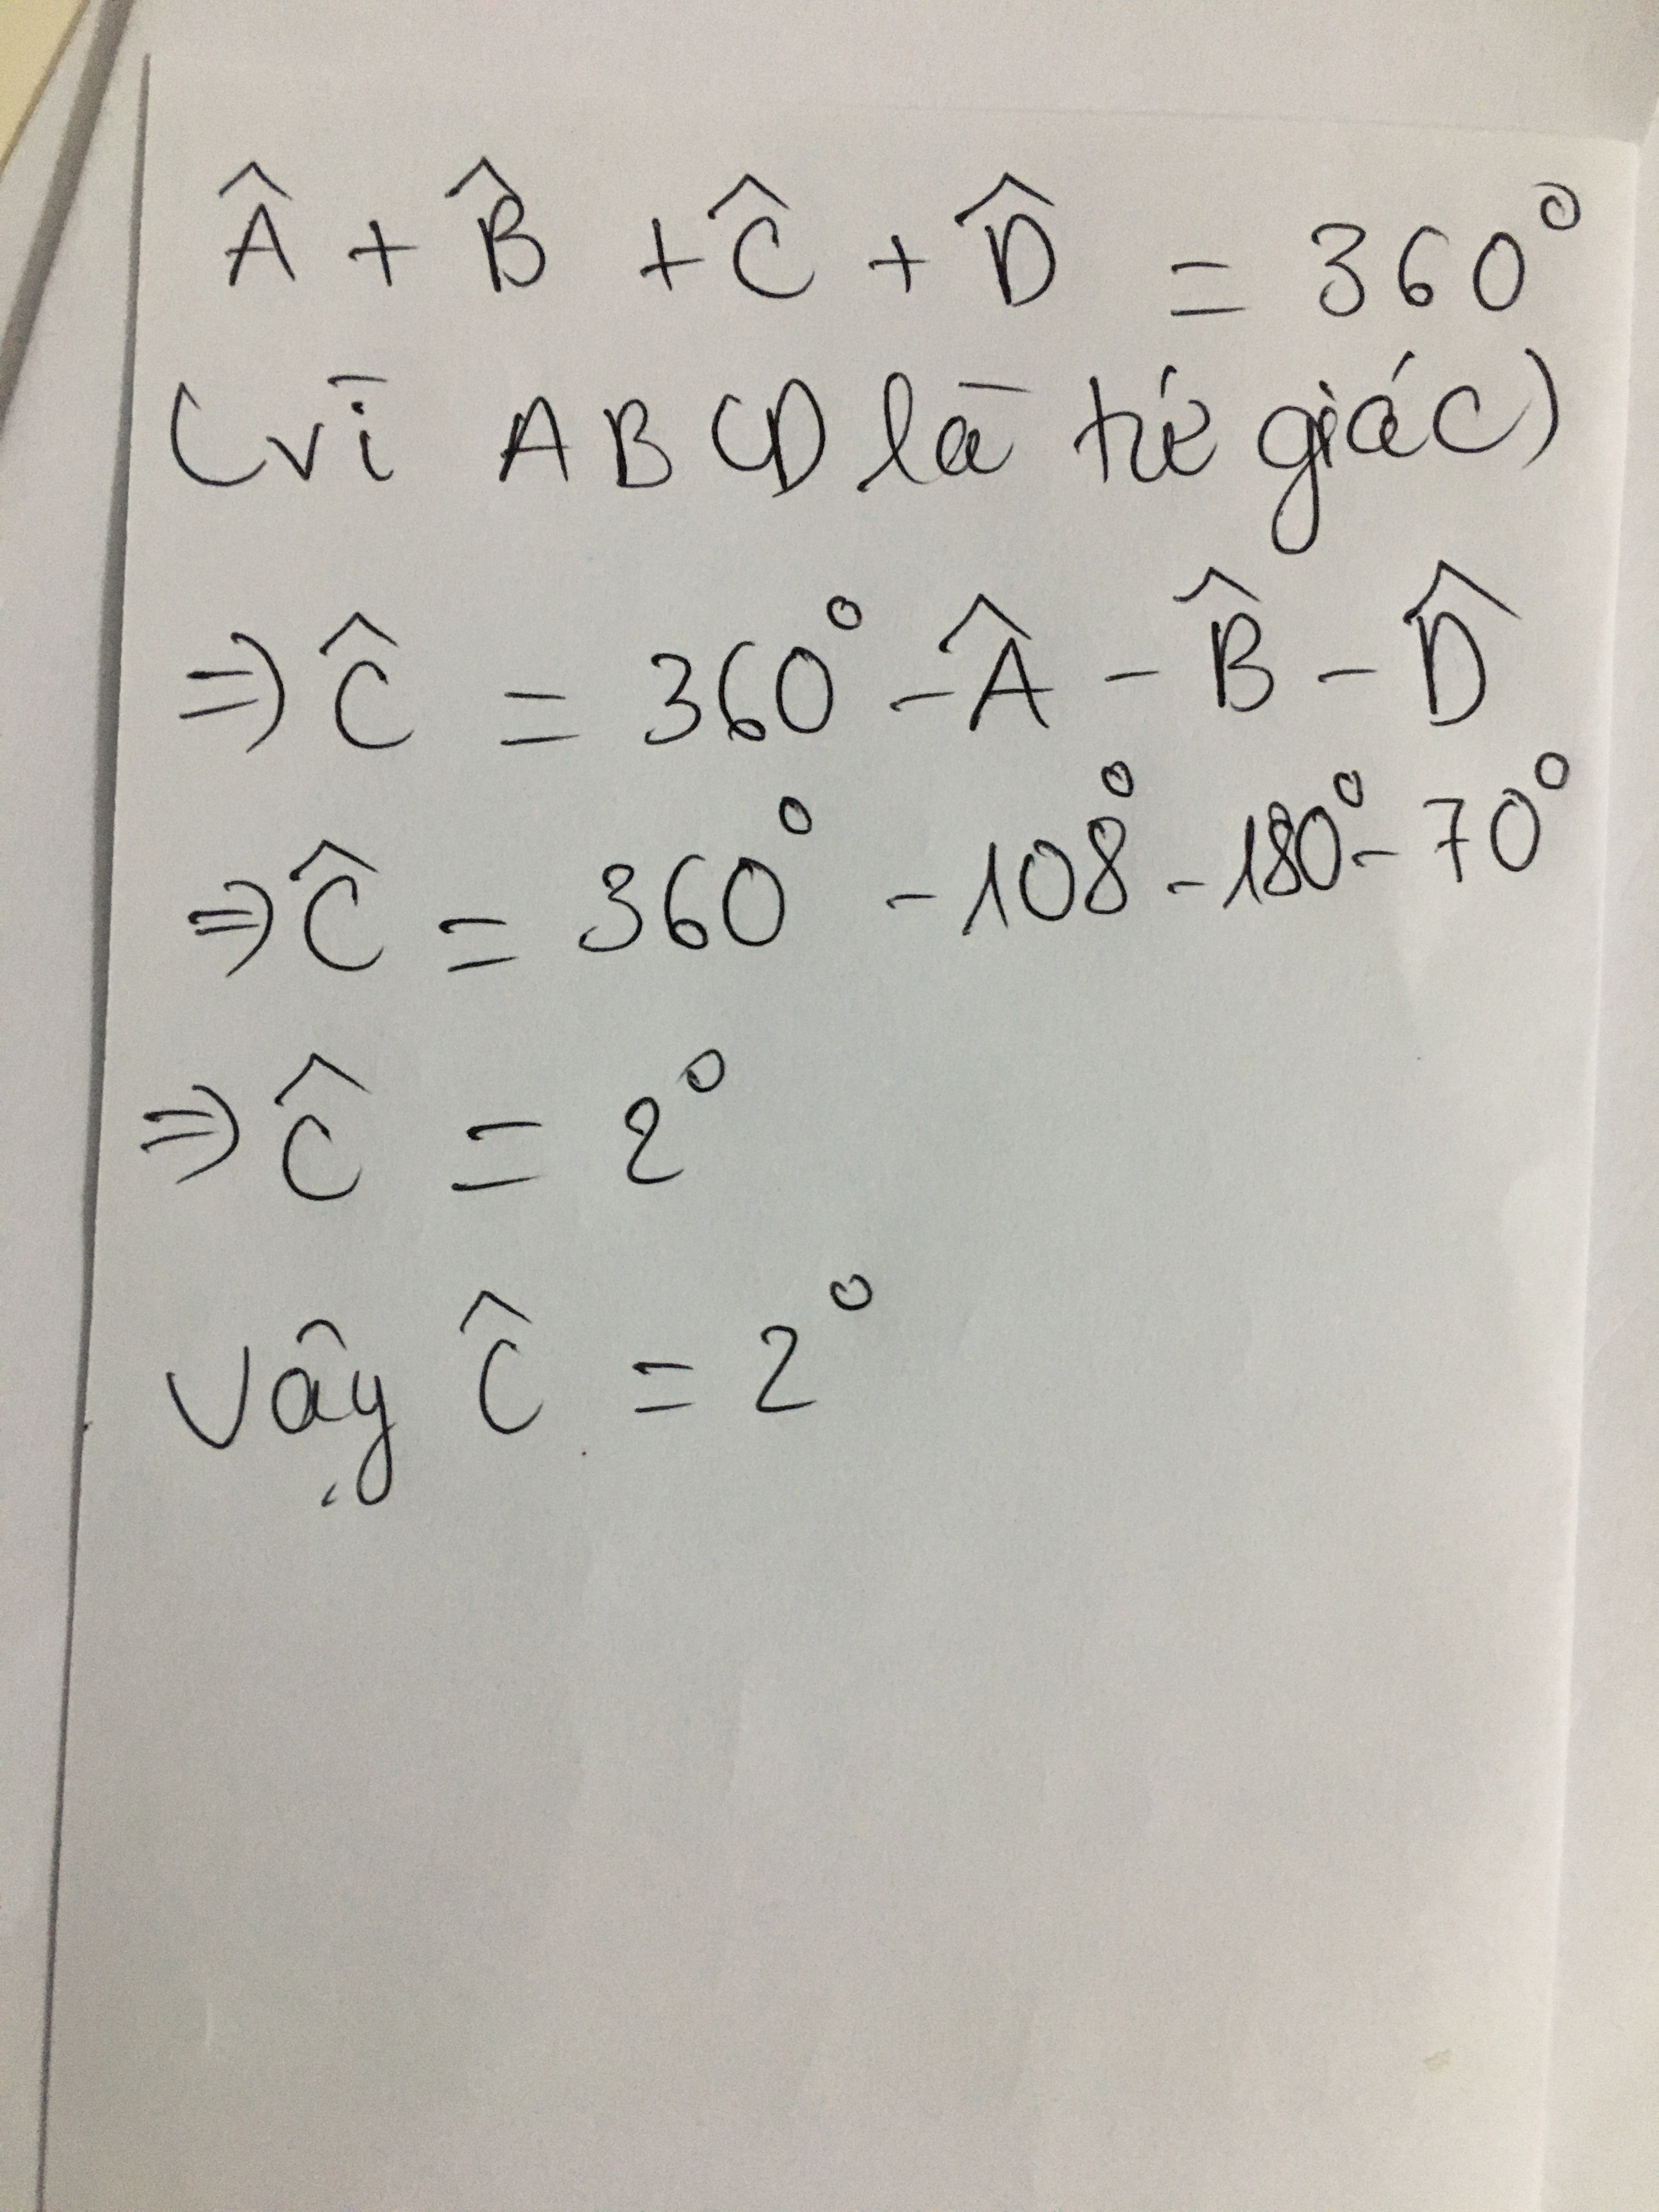 Â + B̂ + Ĉ + D̂ = 360°
(vì ABCD là tứ giác)
⇒ Ĉ = 360° - Â - B̂ - D̂
⇒ Ĉ = 360° - 108° - 180° - 70°
⇒ Ĉ = 2°
Vậy Ĉ = 2°